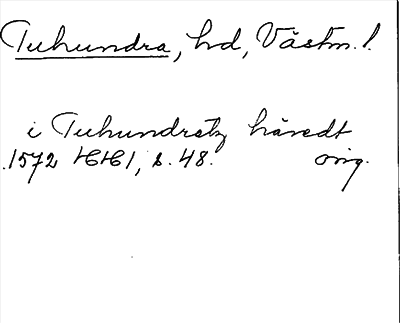 Tuhundra, hd, Västm. l.
i Tuhundratz häredt
1572 HH1, s. 48. orig.